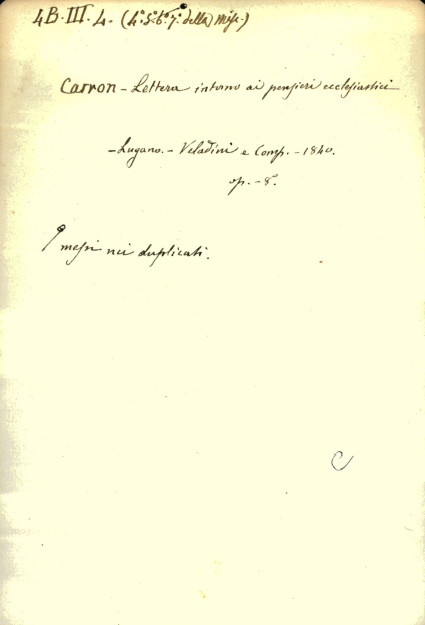 4B.III.4. (4.ª 5.ª 6.ª 7.ª della Misc.)
Carron - Lettera intorno ai pensieri ecclesiastici
- Lugano. - Veladini e Comp. - 1840.
op. - 8.º
messi nei duplicati.
C